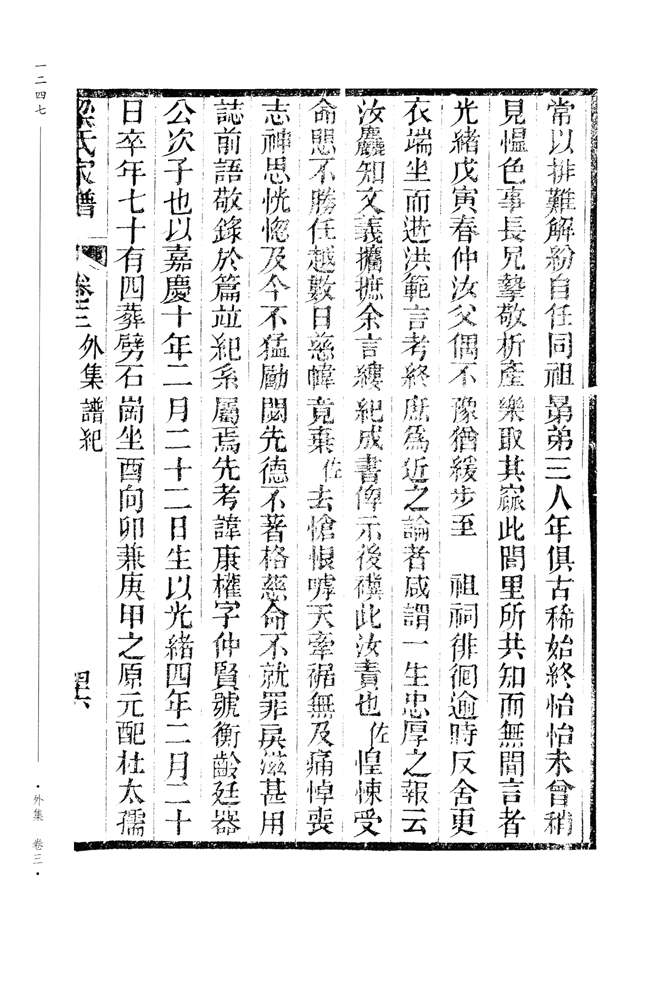 常以排難解紛自任同祖晜弟三人年俱古稀始終怡怡未曾稍
見慍色事長兄摯敬析產樂取其窳此閭里所共知而無間言者
光緒戊寅春仲汝父偶不豫猶緩步至　祖祠徘徊逾時反舍更
衣端坐而逝洪範言考終庶為近之論者咸謂一生忠厚之報云
汝麤知文義攟摭余言縷紀成書俾示後禩此汝責也佐惶悚受
命思不勝任越數日慈幃竟棄佐去愴恨嘑天牽裾無及痛悼喪
志神思恍惚及今不猛勵闕先德不著格慈命不就罪戾滋甚用
誌前語敬錄於篇竝紀系屬焉先考諱康權字仲賢號衡齡廷器
公次子也以嘉慶十年二月二十二日生以光緒四年二月二十
日卒年七十有四葬劈石崗坐酉向卯兼庚甲之原元配杜太孺
梁氏家譜　卷三　外集　譜紀　四六
一二四七
·外集　卷三·